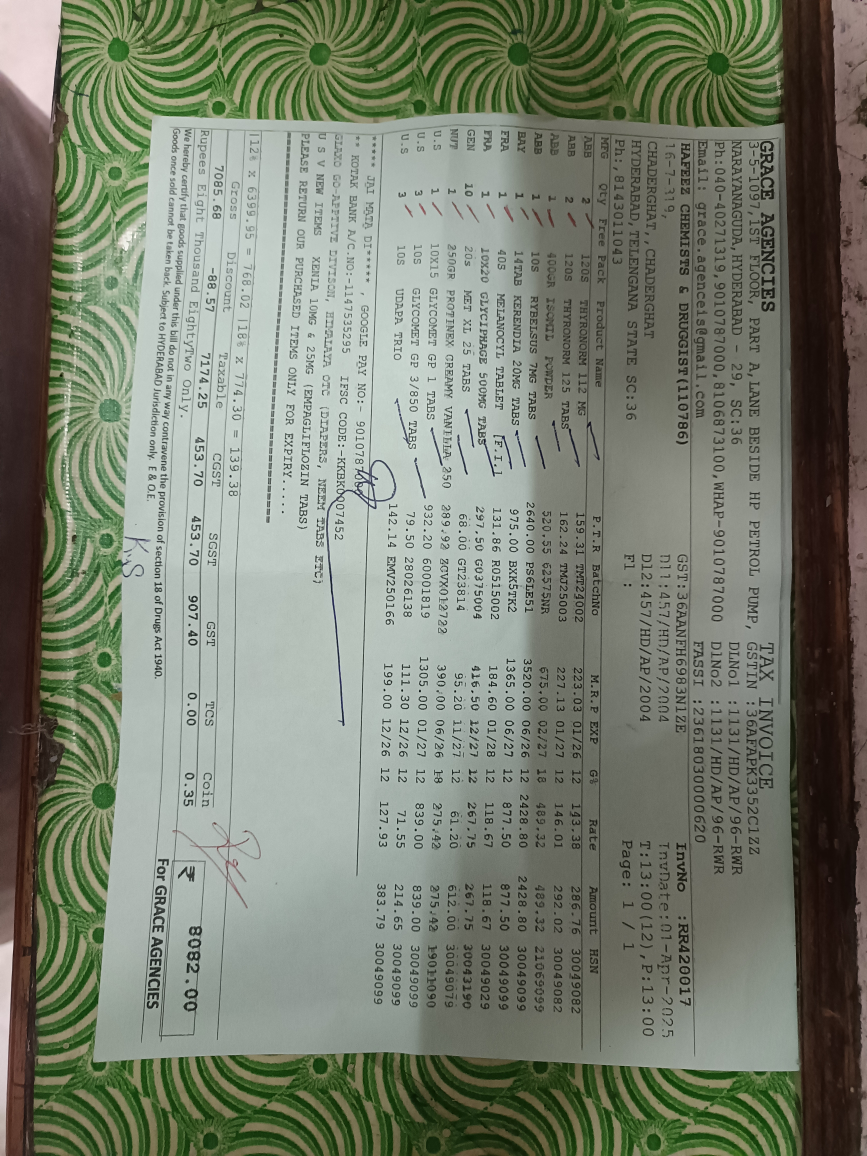 GRACE AGENCIES TAX INVOICE
3-5-1091,1ST FLOOR, PART A,LANE BESIDE HP PETROL PUMP, GSTIN :36AFAPK3352C1ZZ
NARAYANAGUDA,HYDERABAD - 29, SC:36 DLNo1 :1131/HD/AP/96-RWR
Ph:040-40271319,9010787000,8106873100,WHAP-9010787000 DlNo2 :1131/HD/AP/96-RWR
Email: grace.agenceis@gmail.com FASSI :23618030000620
HAFEEZ CHEMISTS & DRUGGIST(110786) GST:36AANFH6983N1ZE InvNo :RR420017
16-7-319, Dl1:457/HD/AP/2004 InvDate:01-Apr-2025
CHADERGHAT,,CHADERGHAT Dl2:457/HD/AP/2004 T:13:00(12),P:13:00
HYDERABAD,TELENGANA STATE SC:36 Fl : Page: 1 / 1
Ph:,8143011043
MFG Qty Free Pack Product Name P.T.R BatchNo M.R.P EXP G% Rate Amount HSN
ABB 2 120S THYRONORM 112 MG 159.31 TMT24002 223.03 01/26 12 143.38 286.76 30049082
ABB 2 120S THYRONORM 125 TABS 162.24 TMJ25003 227.13 01/27 12 146.01 292.02 30049082
ABB 1 400GR ISOMIL POWDER 520.55 62575NR 675.00 02/27 18 489.32 489.32 21069099
ABB 1 10S RYBELSUS 7MG TABS 2640.00 PS6LE51 3520.00 06/26 12 2428.80 2428.80 30049099
BAY 1 14TAB KERENDIA 20MG TABS 975.00 BXK5TK2 1365.00 06/27 12 877.50 877.50 30049099
FRA 1 40S MELANOCYL TABLET [F.I.] 131.86 R0515002 184.60 01/28 12 118.67 118.67 30049029
FRA 1 10X20 GLYCIPHAGE 500MG TABS 297.50 G0375004 416.50 12/27 12 267.75 267.75 30043190
GEN 10 20s MET XL 25 TABS 68.00 GT23814 95.20 11/27 12 61.20 612.00 30049079
NUT 1 250GR PROTINEX CREAMY VANILLA 250 289.92 390.00 06/26 18 275.42 275.42 19011090
U.S 1 10X15 GLYCOMET GP 1 TABS 932.20 60001819 1305.00 01/27 12 839.00 839.00 30049099
U.S 3 10S GLYCOMET GP 3/850 TABS 79.50 28026138 111.30 12/26 12 71.55 214.65 30049099
U.S 3 10S UDAPA TRIO 142.14 EMV250166 199.00 12/26 12 127.93 383.79 30049099
***** JAI MATA DI***** , GOOGLE PAY NO:- 9010787000
** KOTAK BANK A/C.NO:-1147535295 IFSC CODE:-KKBK0007452
GLAXO GO-APPTIVE DIVISON, HIMALAYA OTC (DIAPERS, NEEM TABS ETC)
U S V NEW ITEMS XENIA 10MG & 25MG (EMPAGLIFLOZIN TABS)
PLEASE RETURN OUR PURCHASED ITEMS ONLY FOR EXPIRY.....
|12% x 6399.95 = 768.02 |18% x 774.30 = 139.38
Gross Discount Taxable CGST SGST GST TCS Coin
7085.68 -88.57 7174.25 453.70 453.70 907.40 0.00 0.35 ₹ 8082.00
Rupees Eight Thousand EightyTwo Only.
We hereby certify that goods supplied under this bill do not in any way contravene the provision of section 18 of Drugs Act 1940.
Goods once sold cannot be taken back. Subject to HYDERABAD Jurisdiction only. E & O.E.
For GRACE AGENCIES